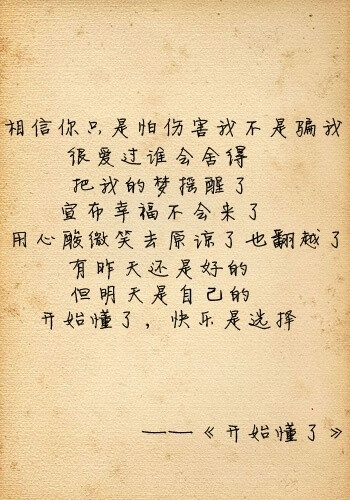 相信你只是怕伤害我不是骗我
很爱过谁会舍得
把我的梦摇醒了
宣布幸福不会来了
用心酸微笑去原谅了也翻越了
有昨天还是好的
但明天是自己的
开始懂了，快乐是选择
——《开始懂了》